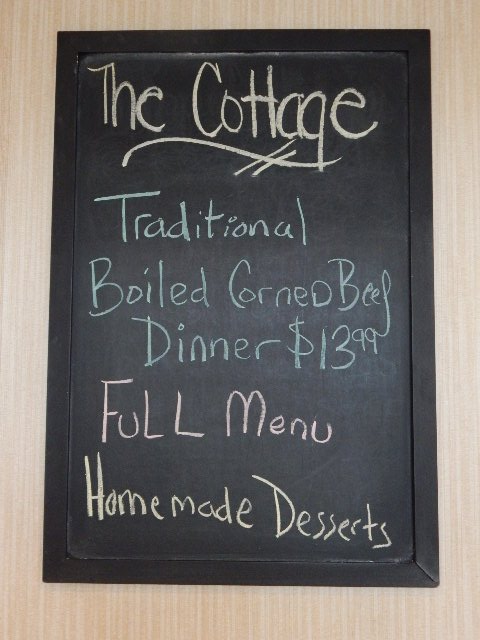 The Cottage
Traditional
Boiled Corned Beef
Dinner $13.99
Full Menu
Homemade Desserts